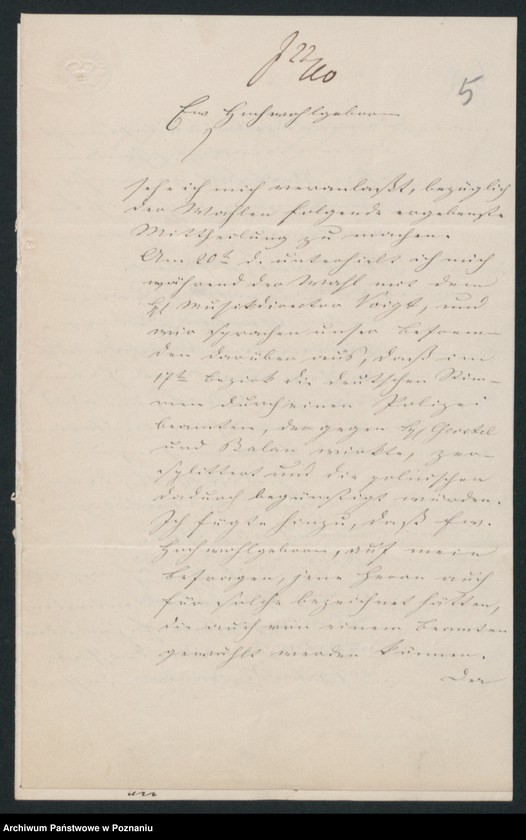 22/10
5
Ew Hochwohlgeboren
sehe ich mich veranlaßt, bezüglich
der Wahlen folgende ergebenste
Mittheilung zu machen.
Am 20t d. unterhielt ich mich
während der Wahl mit dem
H Musikdirector Voigt, und
wir sprachen unser Befrem-
den darüber aus, daß im
17t Bezirk die deutschen Stim-
men durch einen Polizei
beamten, der gegen H
und Balan wirkte, zer-
splittert und die polnischen
dadurch begünstigt würden.
Ich fügte hinzu, daß Ew.
Hochwohlgeboren, auf mein
Befragen, jene Herren auch
für solche bezeichnet hätten,
die auch von einem Beamten
gewählt werden können.
Der
Archiwum Państwowe w Poznaniu